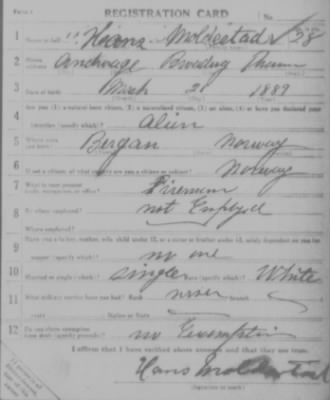 REGISTRATION CARD No.
1 Hans Moldestad 28
2 Anchorage
3 Date of birth March 2 1889
4 Are you (1) a natural-born citizen, (2) a naturalized citizen, (3) an alien, (4) or have you declared your
intention (specify which)? Alien
5 Where were you born? Bergan Norway
6 If not a citizen, of what country are you a citizen or subject? Norway
7 What is your present trade, occupation, or office? Fireman
8 By whom employed? not Employed
Where employed?
9 Have you a father, mother, wife, child under 12, or a sister or brother under 12, solely dependent on you for
support (specify which)? no one
10 Married or single (which)? single Race (specify which)? White
11 What military service have you had? Rank never branch
years Nation or State
12 Do you claim exemption from draft (specify grounds)? no Exemption
I affirm that I have verified above answers and that they are true.
Hans Moldestad